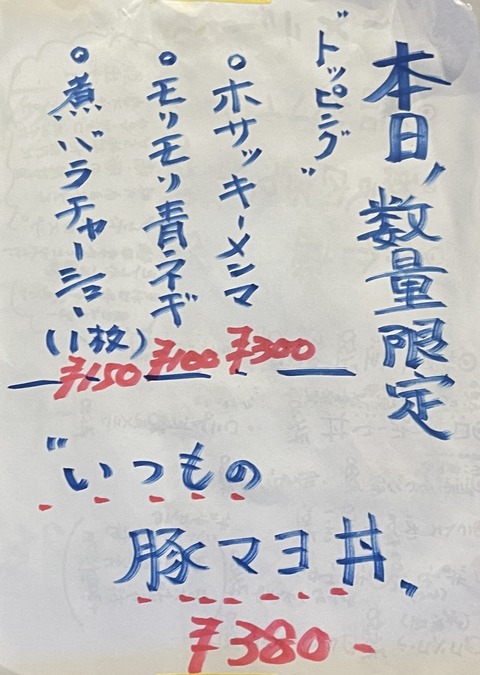 本日、数量限定
"トッピング"
○ホサッキーメンマ
¥300
○モリモリ青ネギ
¥100
○煮バラチャーシュー(1枚)
¥150
"いつもの
豚マヨ丼"
¥380-